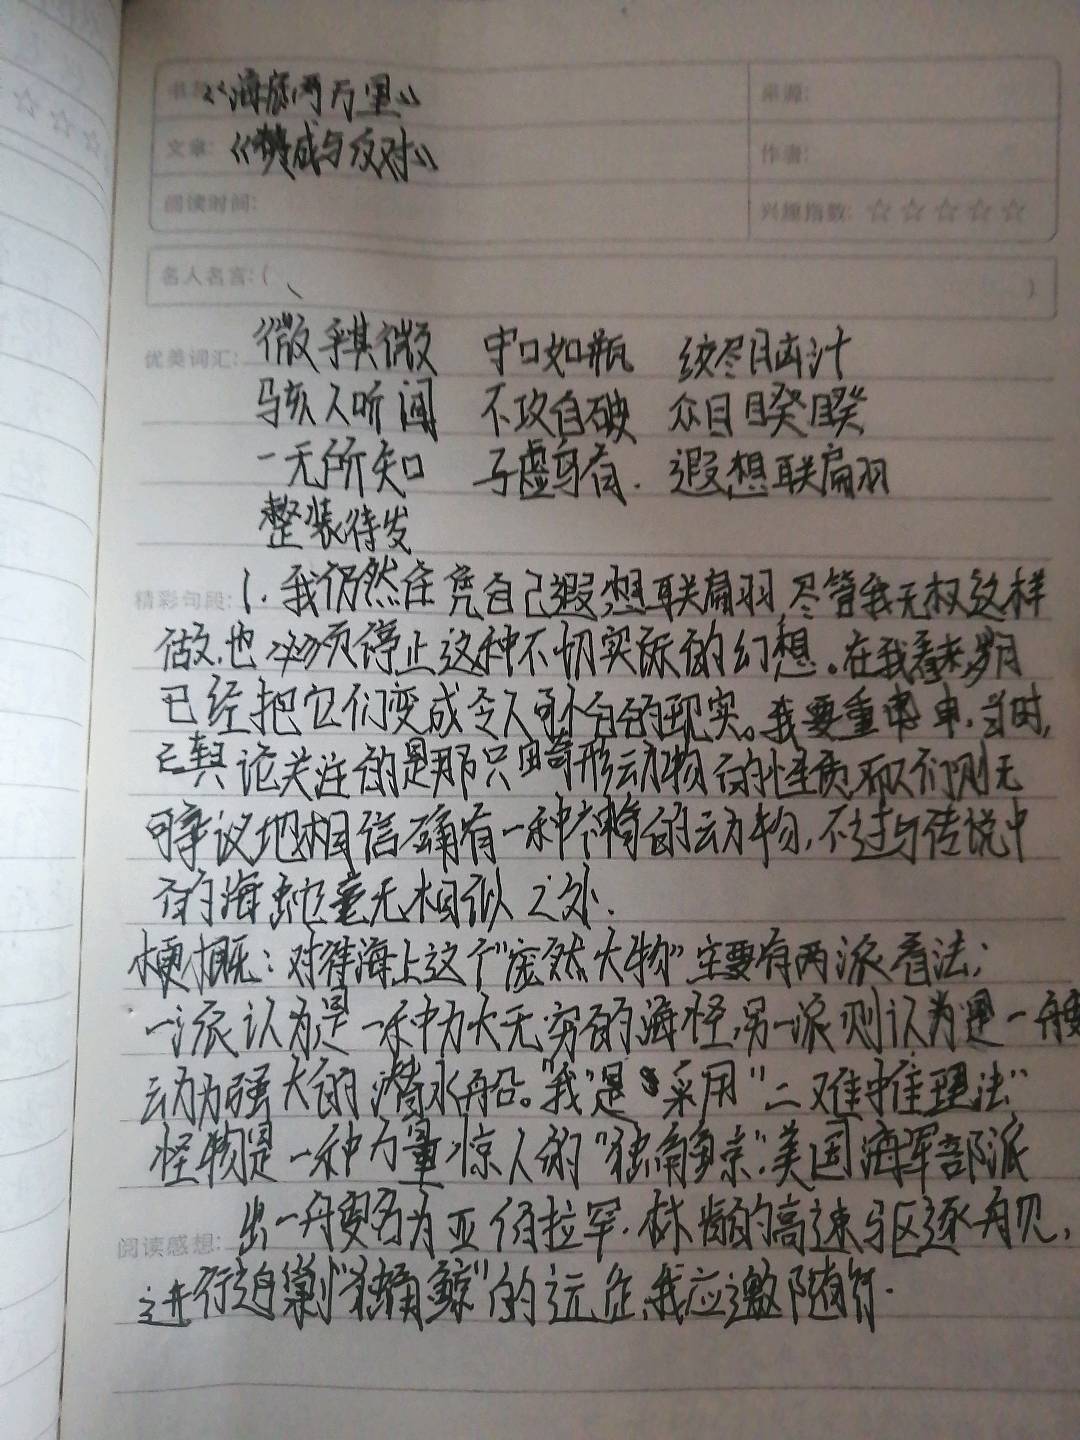 书名:《海底两万里》 来源:
文章:《赞成与反对》 作者:
阅读时间: 兴趣指数: ☆☆☆☆☆
名人名言:( )
优美词汇: 微乎其微 守口如瓶 绞尽脑汁
骇人听闻 不攻自破 众目睽睽
一无所知 子虚乌有. 遐想联翩
整装待发
精彩句段: 1. 我仍然任凭自己遐想联翩,尽管我无权这样
做,也必须停止这种不切实际的幻想。在我看来,岁月
已经把它们变成令人可怕的现实。我要重申,当时,
舆论关注的是那只畸形动物的性质 人们则无
可争议地相信确有一种神奇的动物,不过与传说中
的海蛇毫无相似之处.
梗概: 对待海上这个"庞然大物"主要有两派看法;
一派认为是一种力大无穷的海怪,另一派则认为是一艘
动力强大的潜水船。"我"是采用"二难推理法"
怪物是一种力量惊人的"独角鲸".美国海军部派
出一艘名为亚伯拉罕·林肯的高速驱逐舰,
阅读感想:
进行追剿"独角鲸"的远征,我应邀随行.